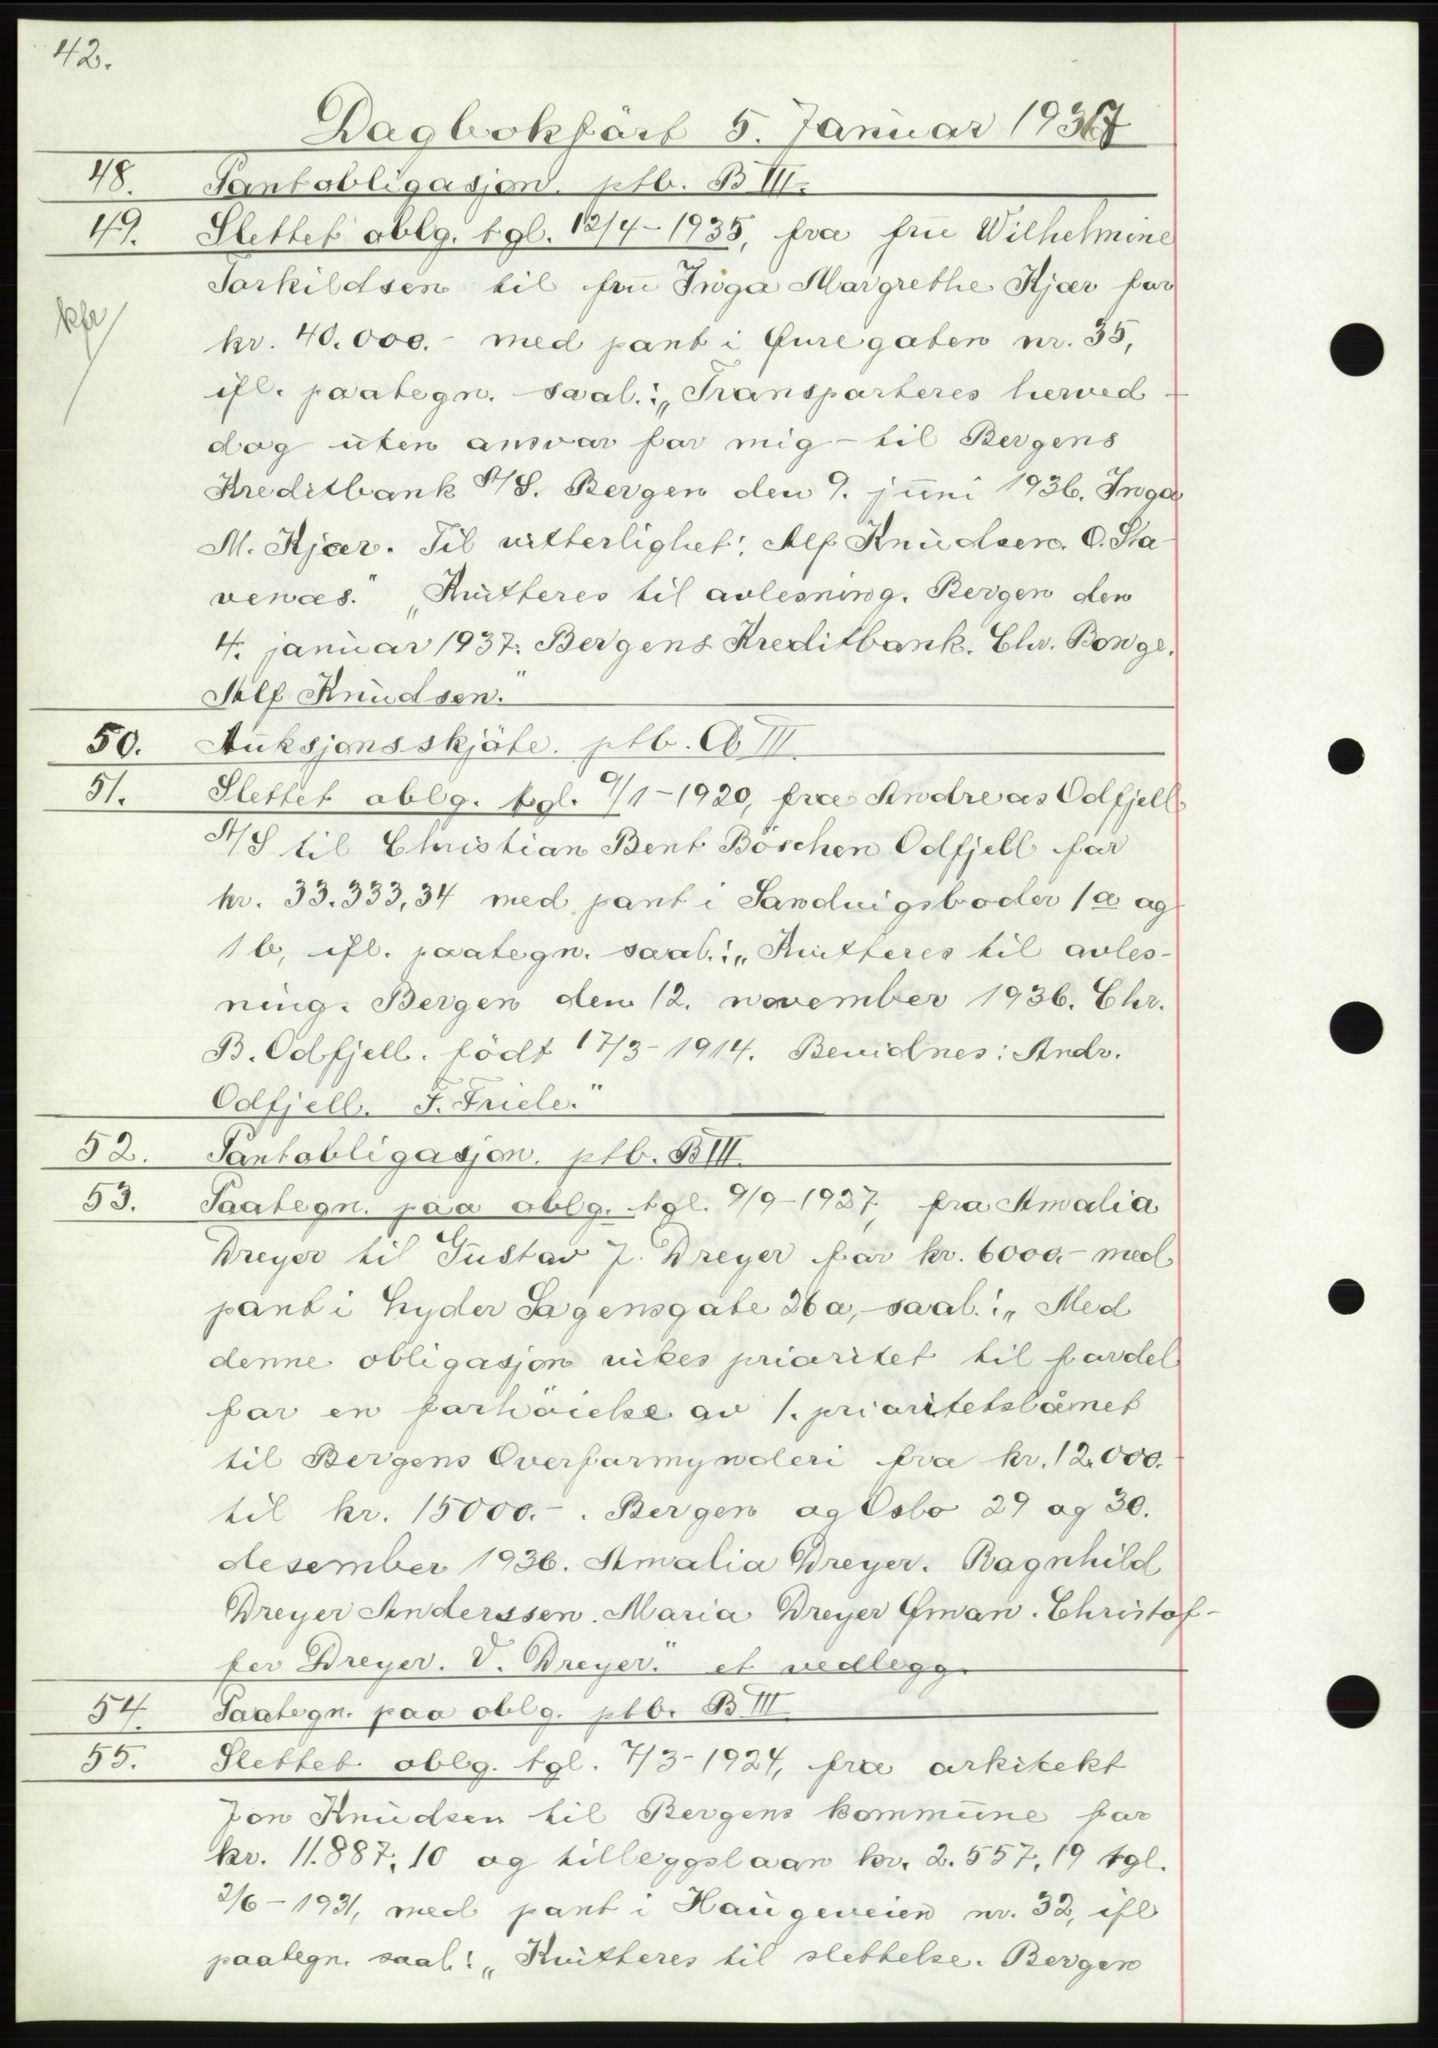 42.
Dagbokført 5. Januar 1937
48. Pantobligasjon. ptb. B III.
49. Slettet oblg. tgl. 12/4-1935, fra frü Wilhelmine
Torkildsen til frü Inga Margrethe Kjær for
kfr
kr. 40.000.- med pant i Øuregaten nr. 35,
ifl. paategn. saal.: „Transporteres herved -
dog uten ansvar for mig - til Bergens
Kreditbank A/S. Bergen den 9. jüni 1936. Inga
M. Kjær. Til vitterlighet: Alf Knüdsen. O. Sta
venæs." „Kvitteres til avlesning. Bergen den
4. janüar 1937. Bergens Kreditbank. Chr. Bonge.
Alf Knüdsen."
50. Aüksjonsskjöte. ptb. Ab III.
51. Slettet oblg. tgl. 9/1-1920, fra Andreas Odfjell
A/S til Christian Bent Böschen Odfjell for
kr. 33.333,34 med pant i Sandvigsboder 1a og
1b, ifl. paategn. saal.: „Kvitteres til avles-
ning. Bergen den 12. november 1936. Chr.
B. Odfjell. födt 17/3-1914. Bevidnes: Andr.
Odfjell. F. Friele."
52. Pantobligasjon. ptb. B III.
53. Paategn. paa oblg. tgl. 9/9-1927, fra Amalia
Dreyer til Güstav J. Dreyer for kr. 6000.- med
pant i Lyder Sagensgate 26a, saal.: „Med
denne obligasjon vikes prioritet til fordel
for en forhöielse av 1. prioritetslånet
til Bergens Overformynderi fra kr. 12.000.
til kr. 15000.-. Bergen og Oslo 29 og 30.
desember 1936. Amalia Dreyer. Ragnhild
Dreyer Anderssen. Maria Dreyer Öman. Christof-
fer Dreyer. V. Dreyer." et vedlegg.
54. Paategn. paa oblg. ptb. B III
55. Slettet oblg. tgl. 7/3-1924, fra arkitekt
Jon Knüdsen til Bergens kommüne for
kr. 11.887,10 og tilleggslaan kr. 2.557,19 tgl.
2/6-1931, med pant i Haügeveien nr. 32, ifl
paategn. saal.: „Kvitteres til slettelse. Bergen